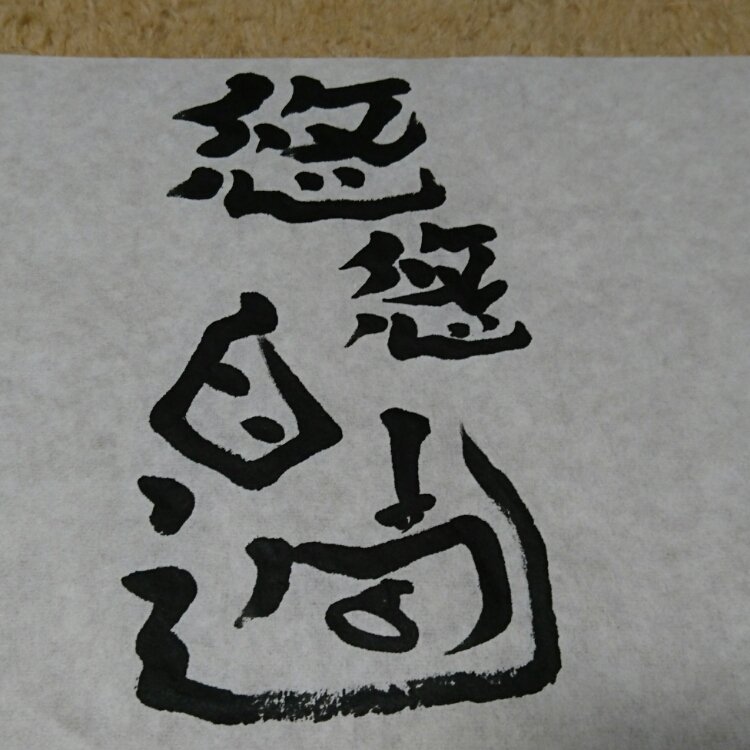 悠悠自適